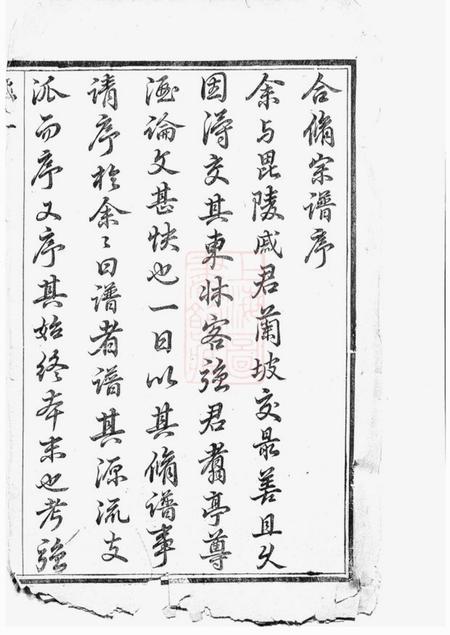 合脩宗譜序
余与毘陵戚君蘭坡交最善且久
因得交其東牀客強君翥亭尊
酒論文甚快也一日以其脩譜事
請序於余〻曰譜者譜其源流支
派而序又序其始終本末也考強